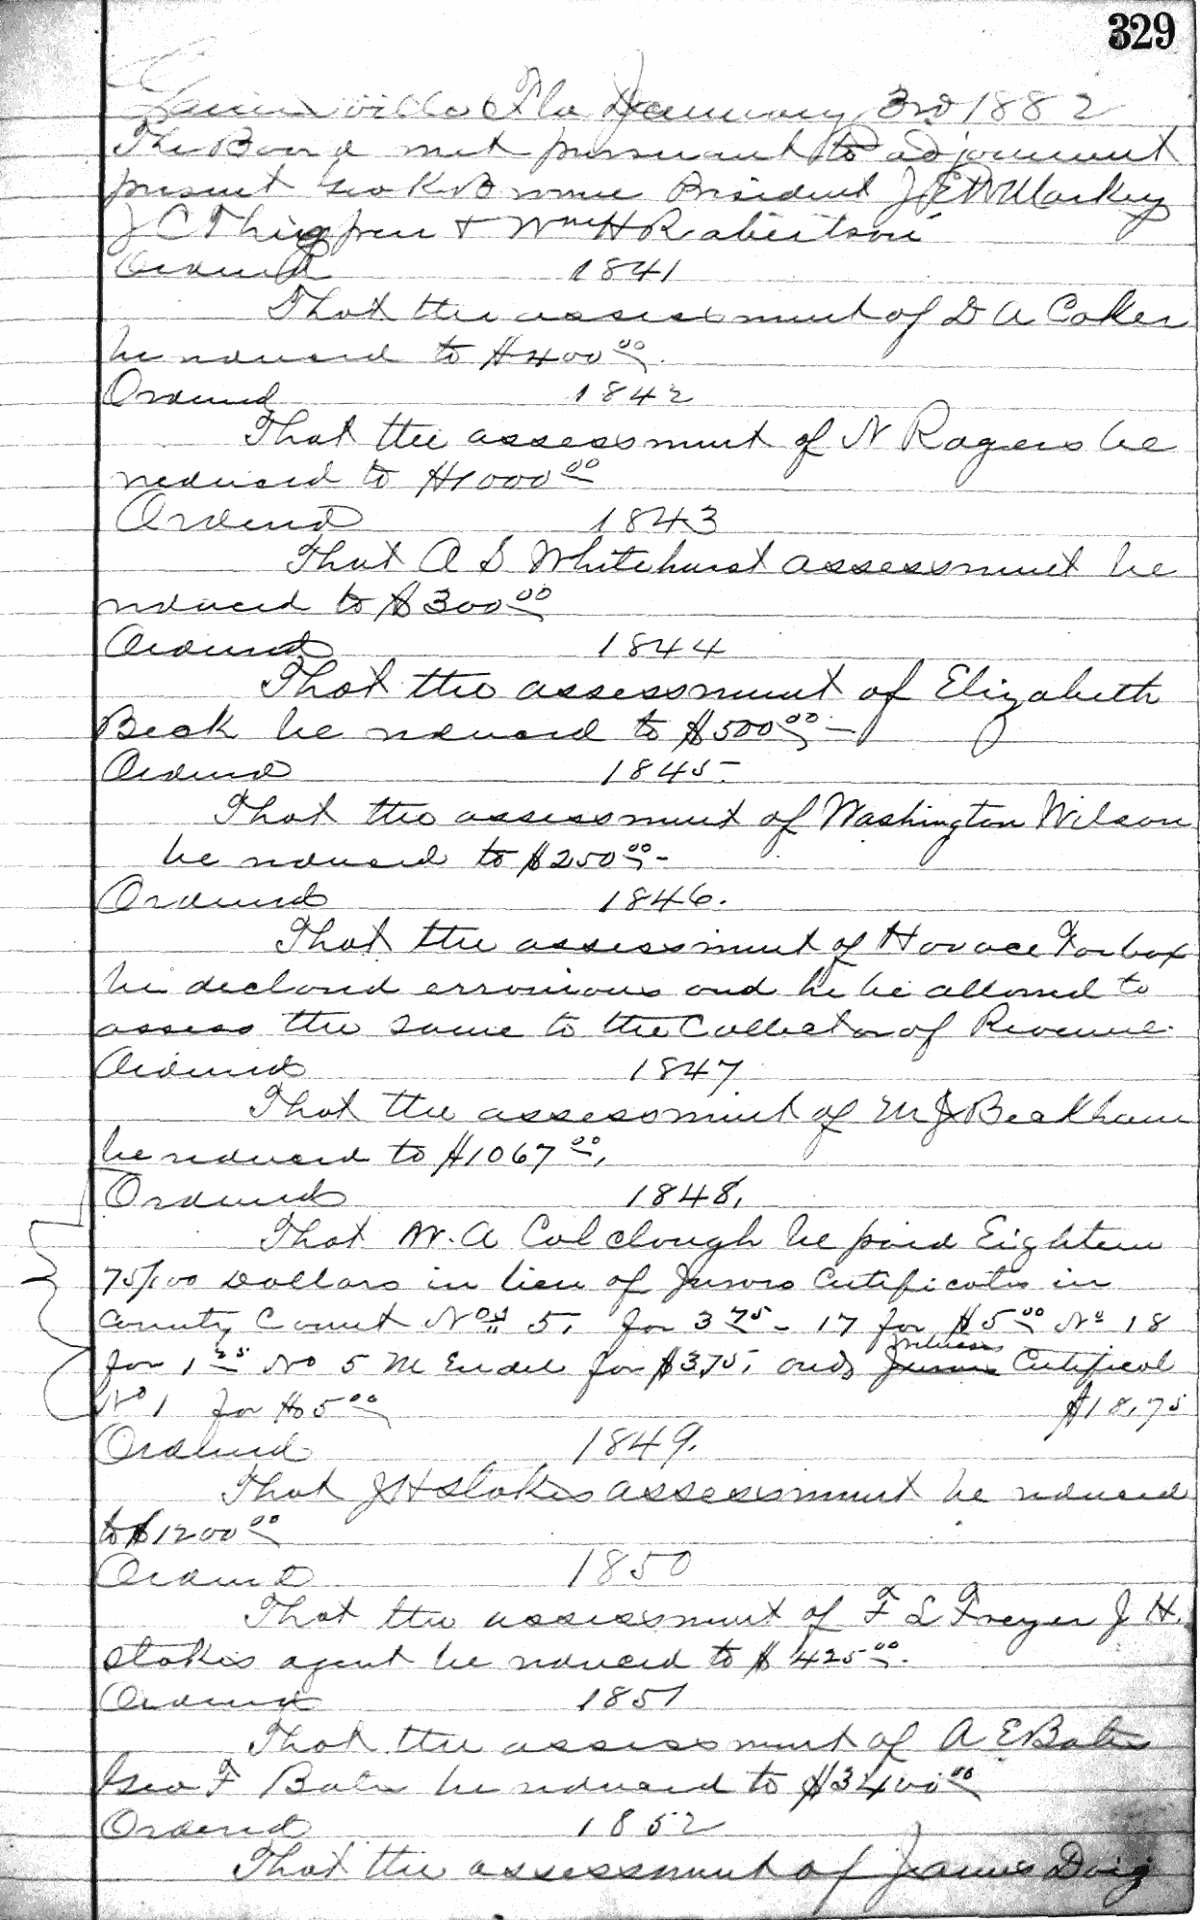 329
Gainesville Fla January 3rd 1882
The Board met pursuant to adjournment
present Geo K Broome President J E W Markey
J C Thigpen & Wm H Robertson
Ordered 1841
That the assessment of D A Coker
be reduced to $400.00
Ordered 1842
That the assessment of N Rogers be
reduced to $1000.00
Ordered 1843
That A S Whitehurst assessment be
reduced to $300.00
Ordered 1844
That the assessment of Elizabeth
Beck be reduced to $500.00
Ordered 1845
That the assessment of Washington Wilson
be reduced to $250.00
Ordered 1846.
That the assessment of Horace Tarbox
be declared erronious and he be allowed to
assess the same to the Collector of Revenue.
Ordered 1847
That the assessment of M J Beckham
be reduced to $1067.00
Ordered 1848.
That W. A Colclough be paid Eighteen
75/100 Dollars in lieu of Jurors Certificates in
County Court Nos 5, for 3.75 - 17 for $5.00 No 18
for 1.25 No 5 M Endel for $3.75, and Jurors witness Certificat
No 1 for $5.00 $18.75
Ordered 1849.
That J H Stokes assessment be reduced
to $1200.00
Ordered 1850
That the assessment of F L Freyer J H.
Stokes agent be reduced to $425.00
Ordered 1851
That the assessment of A E Bate
Geo F Bate be reduced to $3400.00
Ordered 1852
That the assessment of James Doig